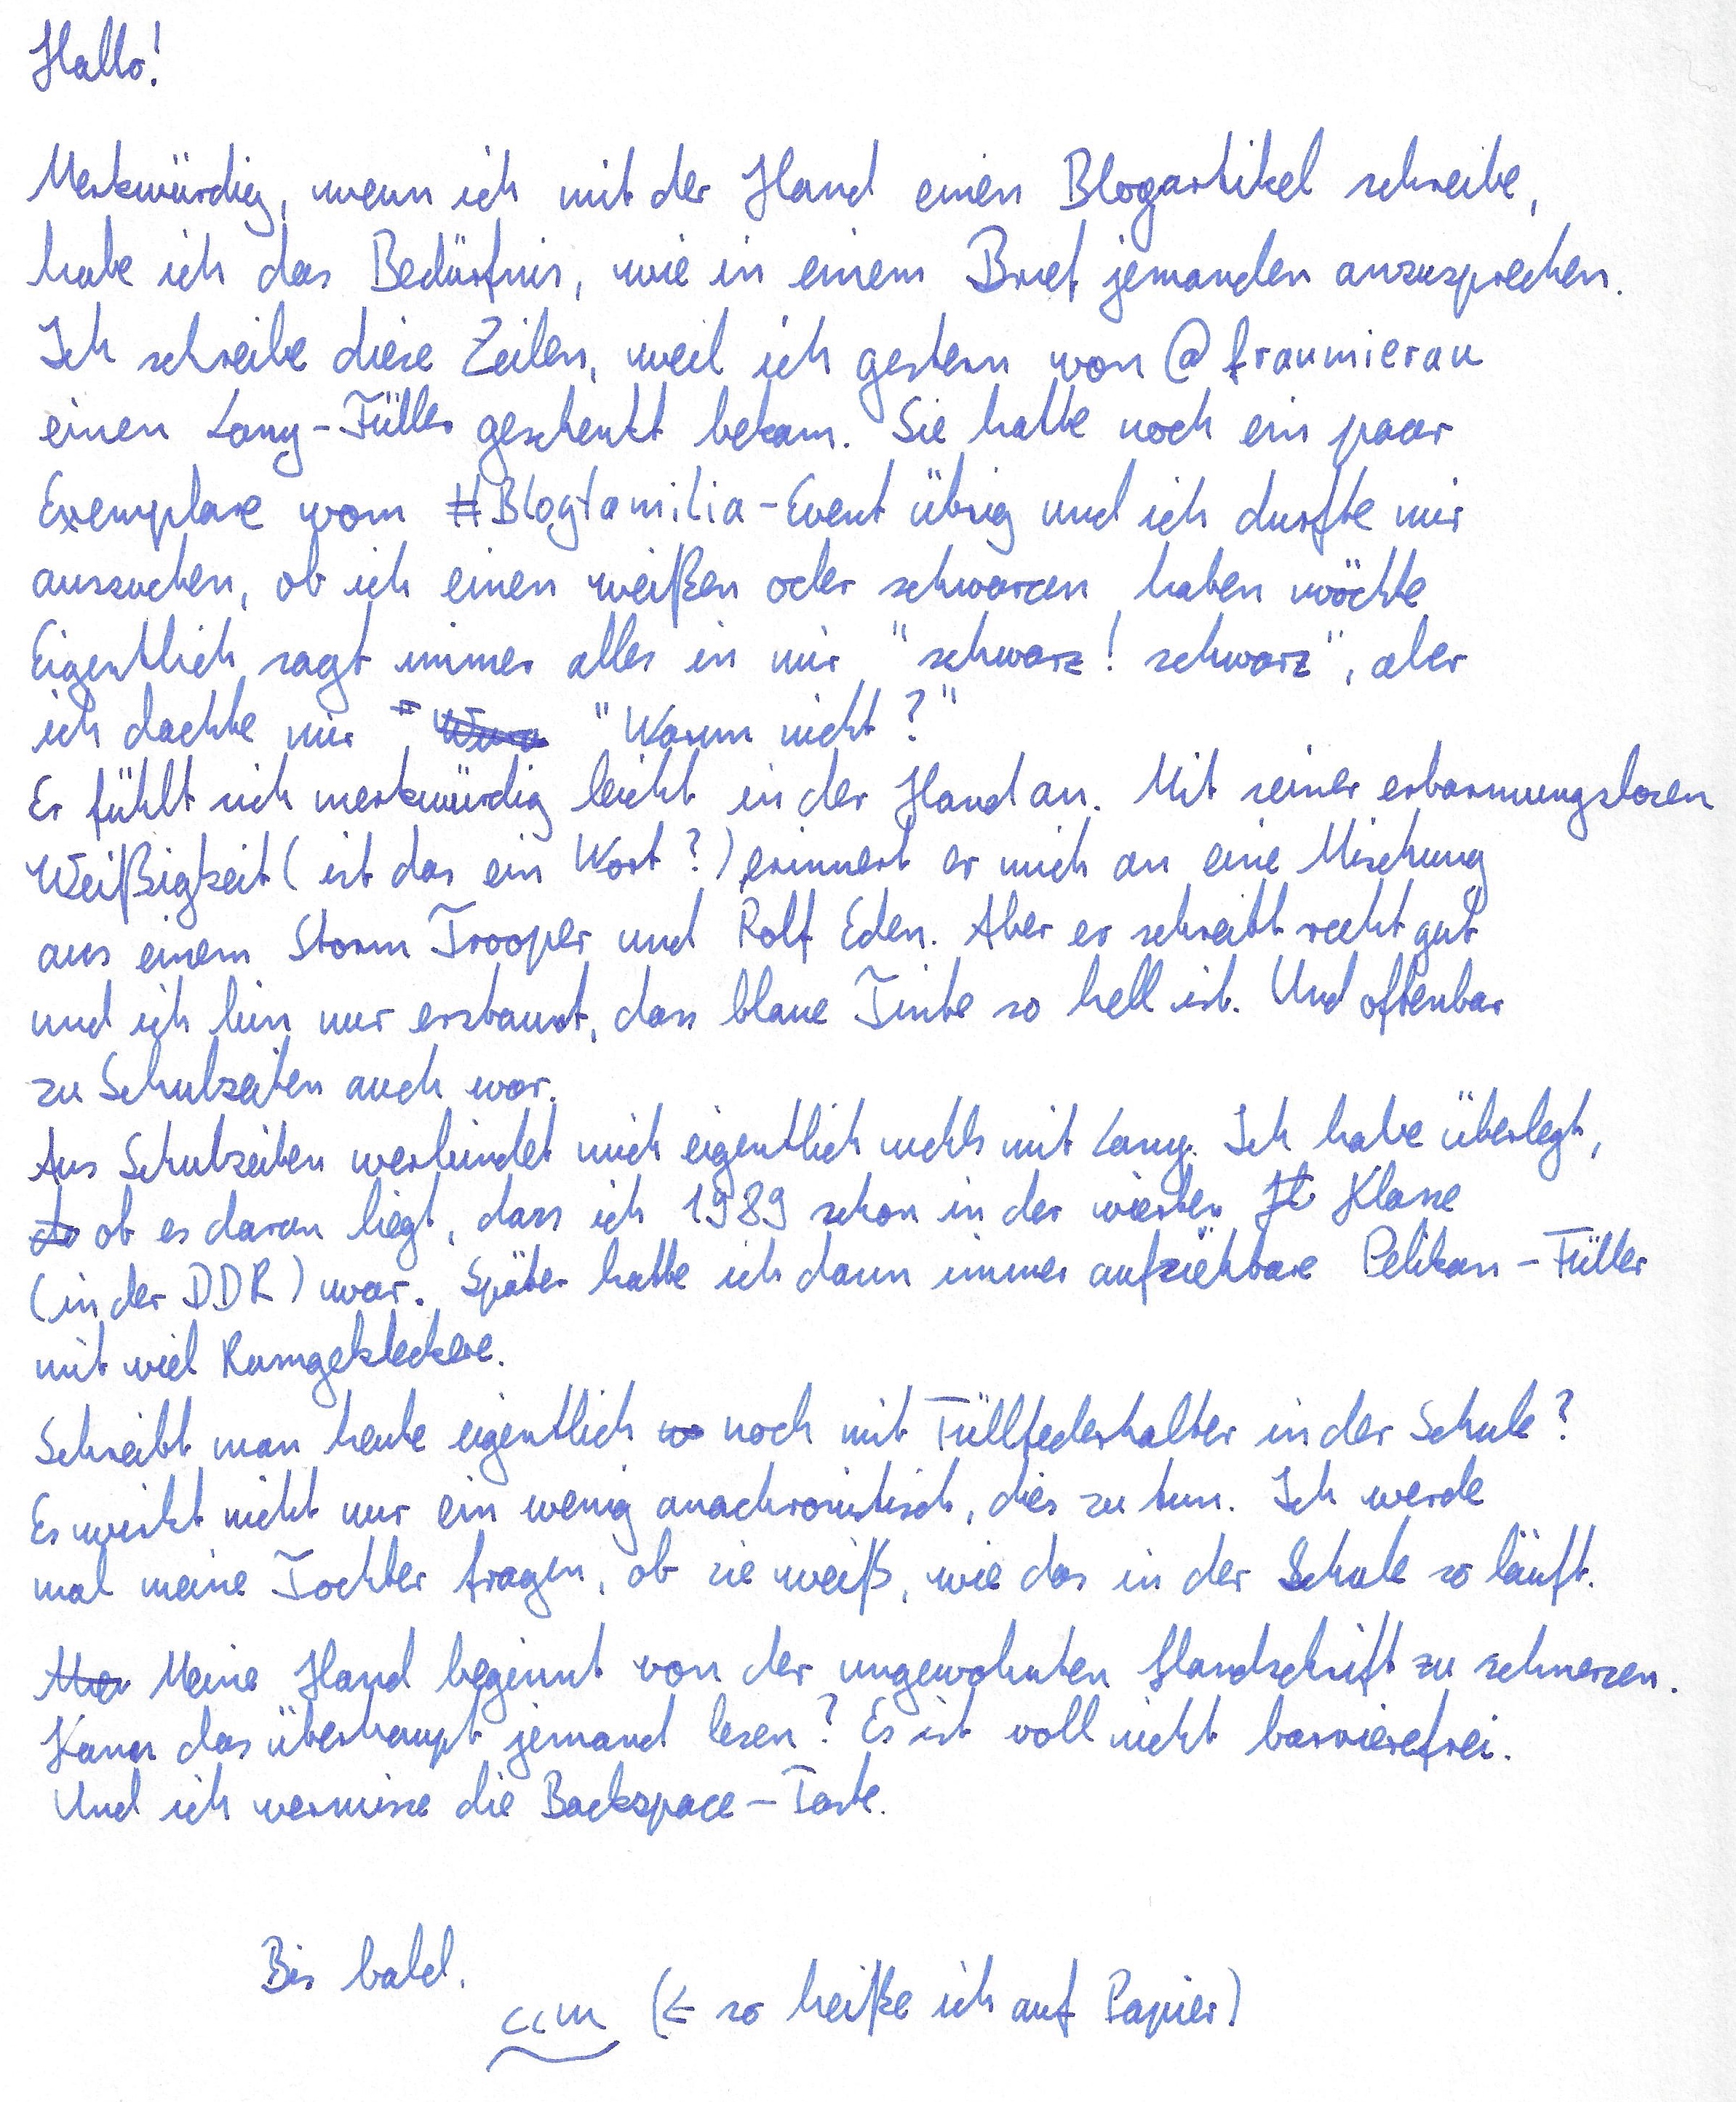 Hallo!
Merkwürdig, wenn ich mit der Hand einen Blogartikel schreibe,
habe ich das Bedürfnis, wie in einem Brief jemanden anzusprechen.
Ich schreibe diese Zeilen, weil ich gestern von @fraumierau
einen Lamy-Füller geschenkt bekam. Sie hatte noch ein paar
Exemplare vom #Blogfamilia-Event übrig und ich durfte mir
aussuchen, ob ich einen weißen oder schwarzen haben möchte
Eigentlich sagt immer alles in mir "schwarz! schwarz", aber
ich dachte mir "Warum nicht?"
Er fühlt sich merkwürdig leicht in der Hand an. Mit seiner erbarmungslosen
Weißigkeit (ist das ein Wort?) erinnert er mich an eine Mischung
aus einem Storm Trooper und Rolf Eden. Aber er schreibt recht gut
und ich bin nur erstaunt, dass blaue Tinte so hell ist. Und offenbar
zu Schulzeiten auch war.
Aus Schulzeiten verbindet mich eigentlich nichts mit Lamy. Ich habe überlegt,
ob es daran liegt, dass ich 1989 schon in der vierten Klasse
(in der DDR) war. Später hatte ich dann immer aufziehbare Pelikan-Füller
mit viel Rumgekleckere.
Schreibt man heute eigentlich noch mit Füllfederhalter in der Schule?
Es wirkt nicht nur ein wenig anachronistisch, dies zu tun. Ich werde
mal meine Tochter fragen, ob sie weiß, wie das in der Schule so läuft.
Meine Hand beginnt von der ungewohnten Handschrift zu schmerzen.
Kann das überhaupt jemand lesen? Es ist voll nicht barrierefrei.
Und ich vermisse die Backspace-Taste.
Bis bald.
ccm (← so heiße ich auf Papier)